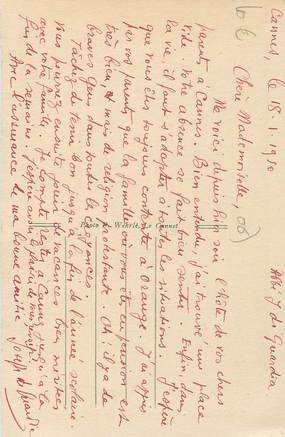 Cannes, le 18.1.1910
Abbé J. di Guardia
Chère Mademoiselle,
Me voici depuis hier soir l'hôte de vos chers
parents à Cannes. Bien entendu j'ai trouvé une place
vide. Votre absence se fait bien sentir. Enfin dans
la vie, il faut s'adapter à toutes les situations. J'espère
que vous êtes toujours contente à Orange. J'ai appris
par vos parents que la famille où vous êtes en pension est
très bien et mais de religion protestante. Oh! il y a de
braves gens dans toutes les croyances.
Photo Wehrlé, Le Cannet
Tâchez de tenir bon jusqu'à la fin de l'année scolaire.
Vous pourrez ensuite de vacances bien méritées
avec votre famille. Je compte rester à Cannes jusqu'à la
fin de la semaine.
Avec l'assurance de ma bonne amitié